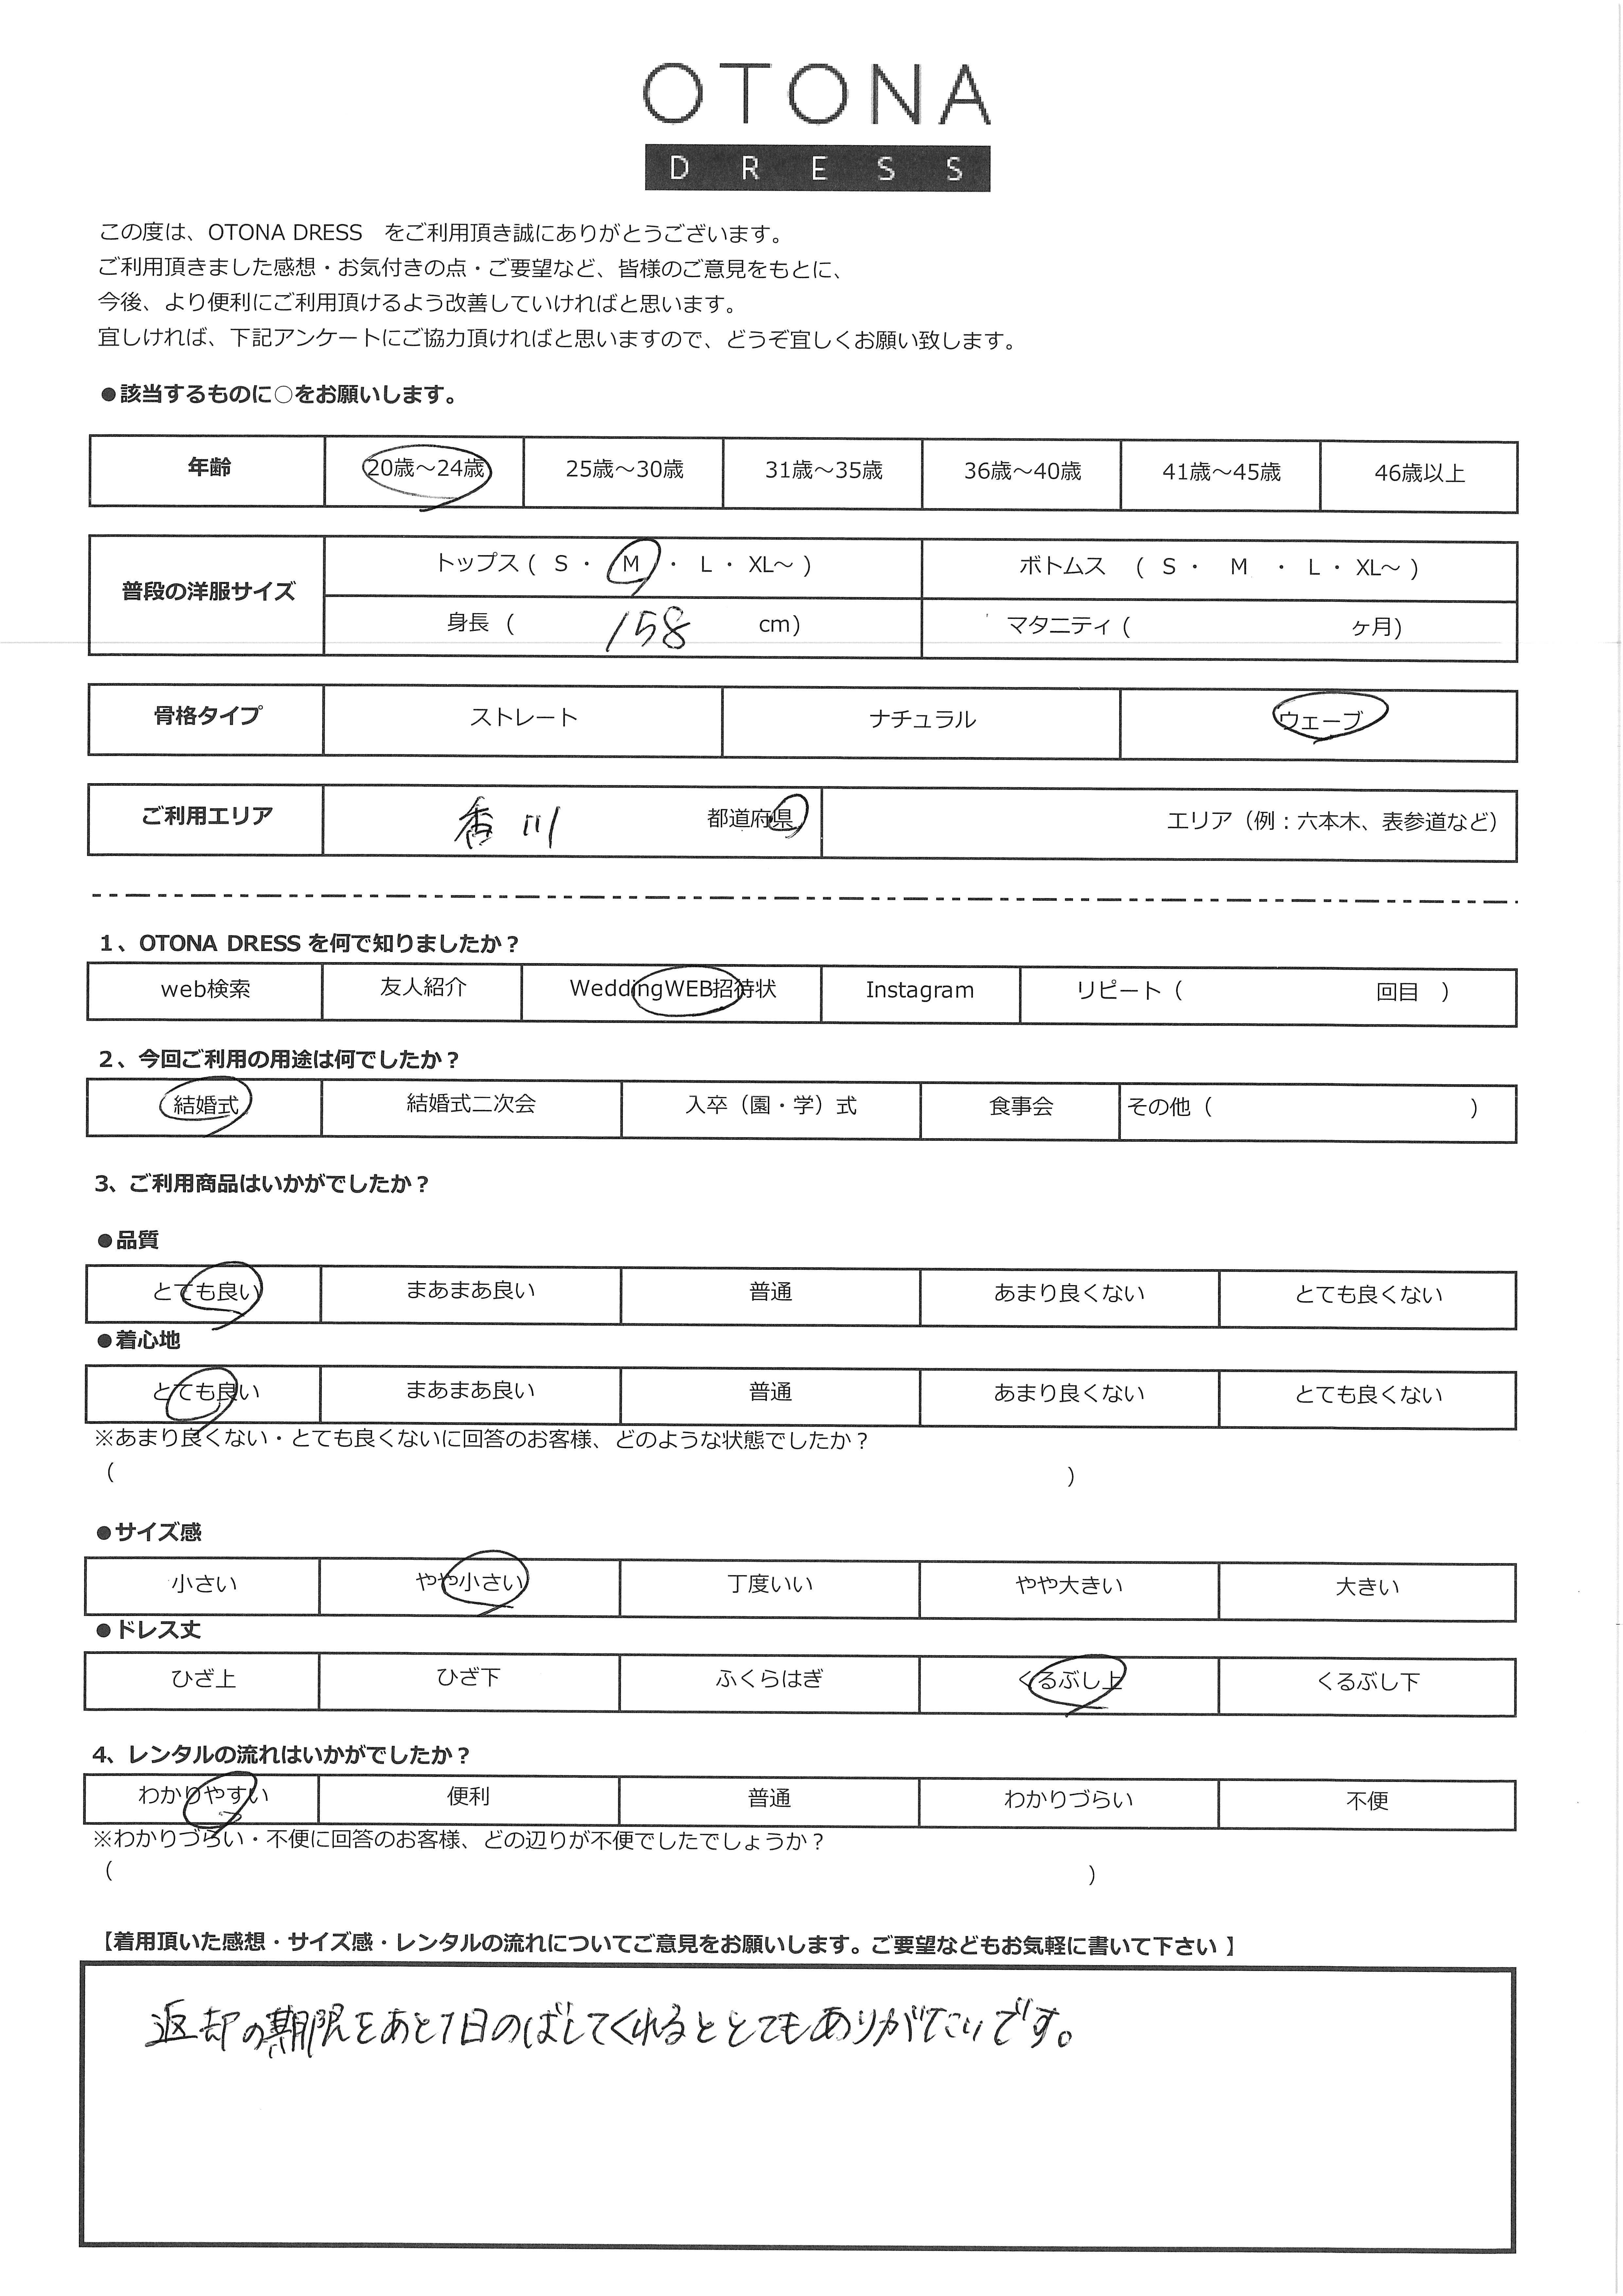 OTONA
DRESS
この度は、OTONA DRESS　をご利用頂き誠にありがとうございます。
ご利用頂きました感想・お気付きの点・ご要望など、皆様のご意見をもとに、
今後、より便利にご利用頂けるよう改善していければと思います。
宜しければ、下記アンケートにご協力頂ければと思いますので、どうぞ宜しくお願い致します。
●該当するものに○をお願いします。
年齢 20歳～24歳 25歳～30歳 31歳～35歳 36歳～40歳 41歳～45歳 46歳以上
普段の洋服サイズ トップス ( S ・ M ・ L ・ XL～ ) ボトムス ( S ・ M ・ L ・ XL～ )
身長 ( 158 cm) マタニティ ( ヶ月)
骨格タイプ ストレート ナチュラル ウェーブ
ご利用エリア 香川 都道府県 エリア（例：六本木、表参道など）
1、OTONA DRESS を何で知りましたか？
web検索 友人紹介 WeddingWEB招待状 Instagram リピート（ 回目 ）
2、今回ご利用の用途は何でしたか？
結婚式 結婚式二次会 入卒（園・学）式 食事会 その他（ ）
3、ご利用商品はいかがでしたか？
●品質
とても良い まあまあ良い 普通 あまり良くない とても良くない
●着心地
とても良い まあまあ良い 普通 あまり良くない とても良くない
※あまり良くない・とても良くないに回答のお客様、どのような状態でしたか？
（ ）
●サイズ感
小さい やや小さい 丁度いい やや大きい 大きい
●ドレス丈
ひざ上 ひざ下 ふくらはぎ くるぶし上 くるぶし下
4、レンタルの流れはいかがでしたか？
わかりやすい 便利 普通 わかりづらい 不便
※わかりづらい・不便に回答のお客様、どの辺りが不便でしたでしょうか？
（ ）
【着用頂いた感想・サイズ感・レンタルの流れについてご意見をお願いします。ご要望などもお気軽に書いて下さい 】
返却の期限をあと1日のばしてくれるととてもありがたいです。